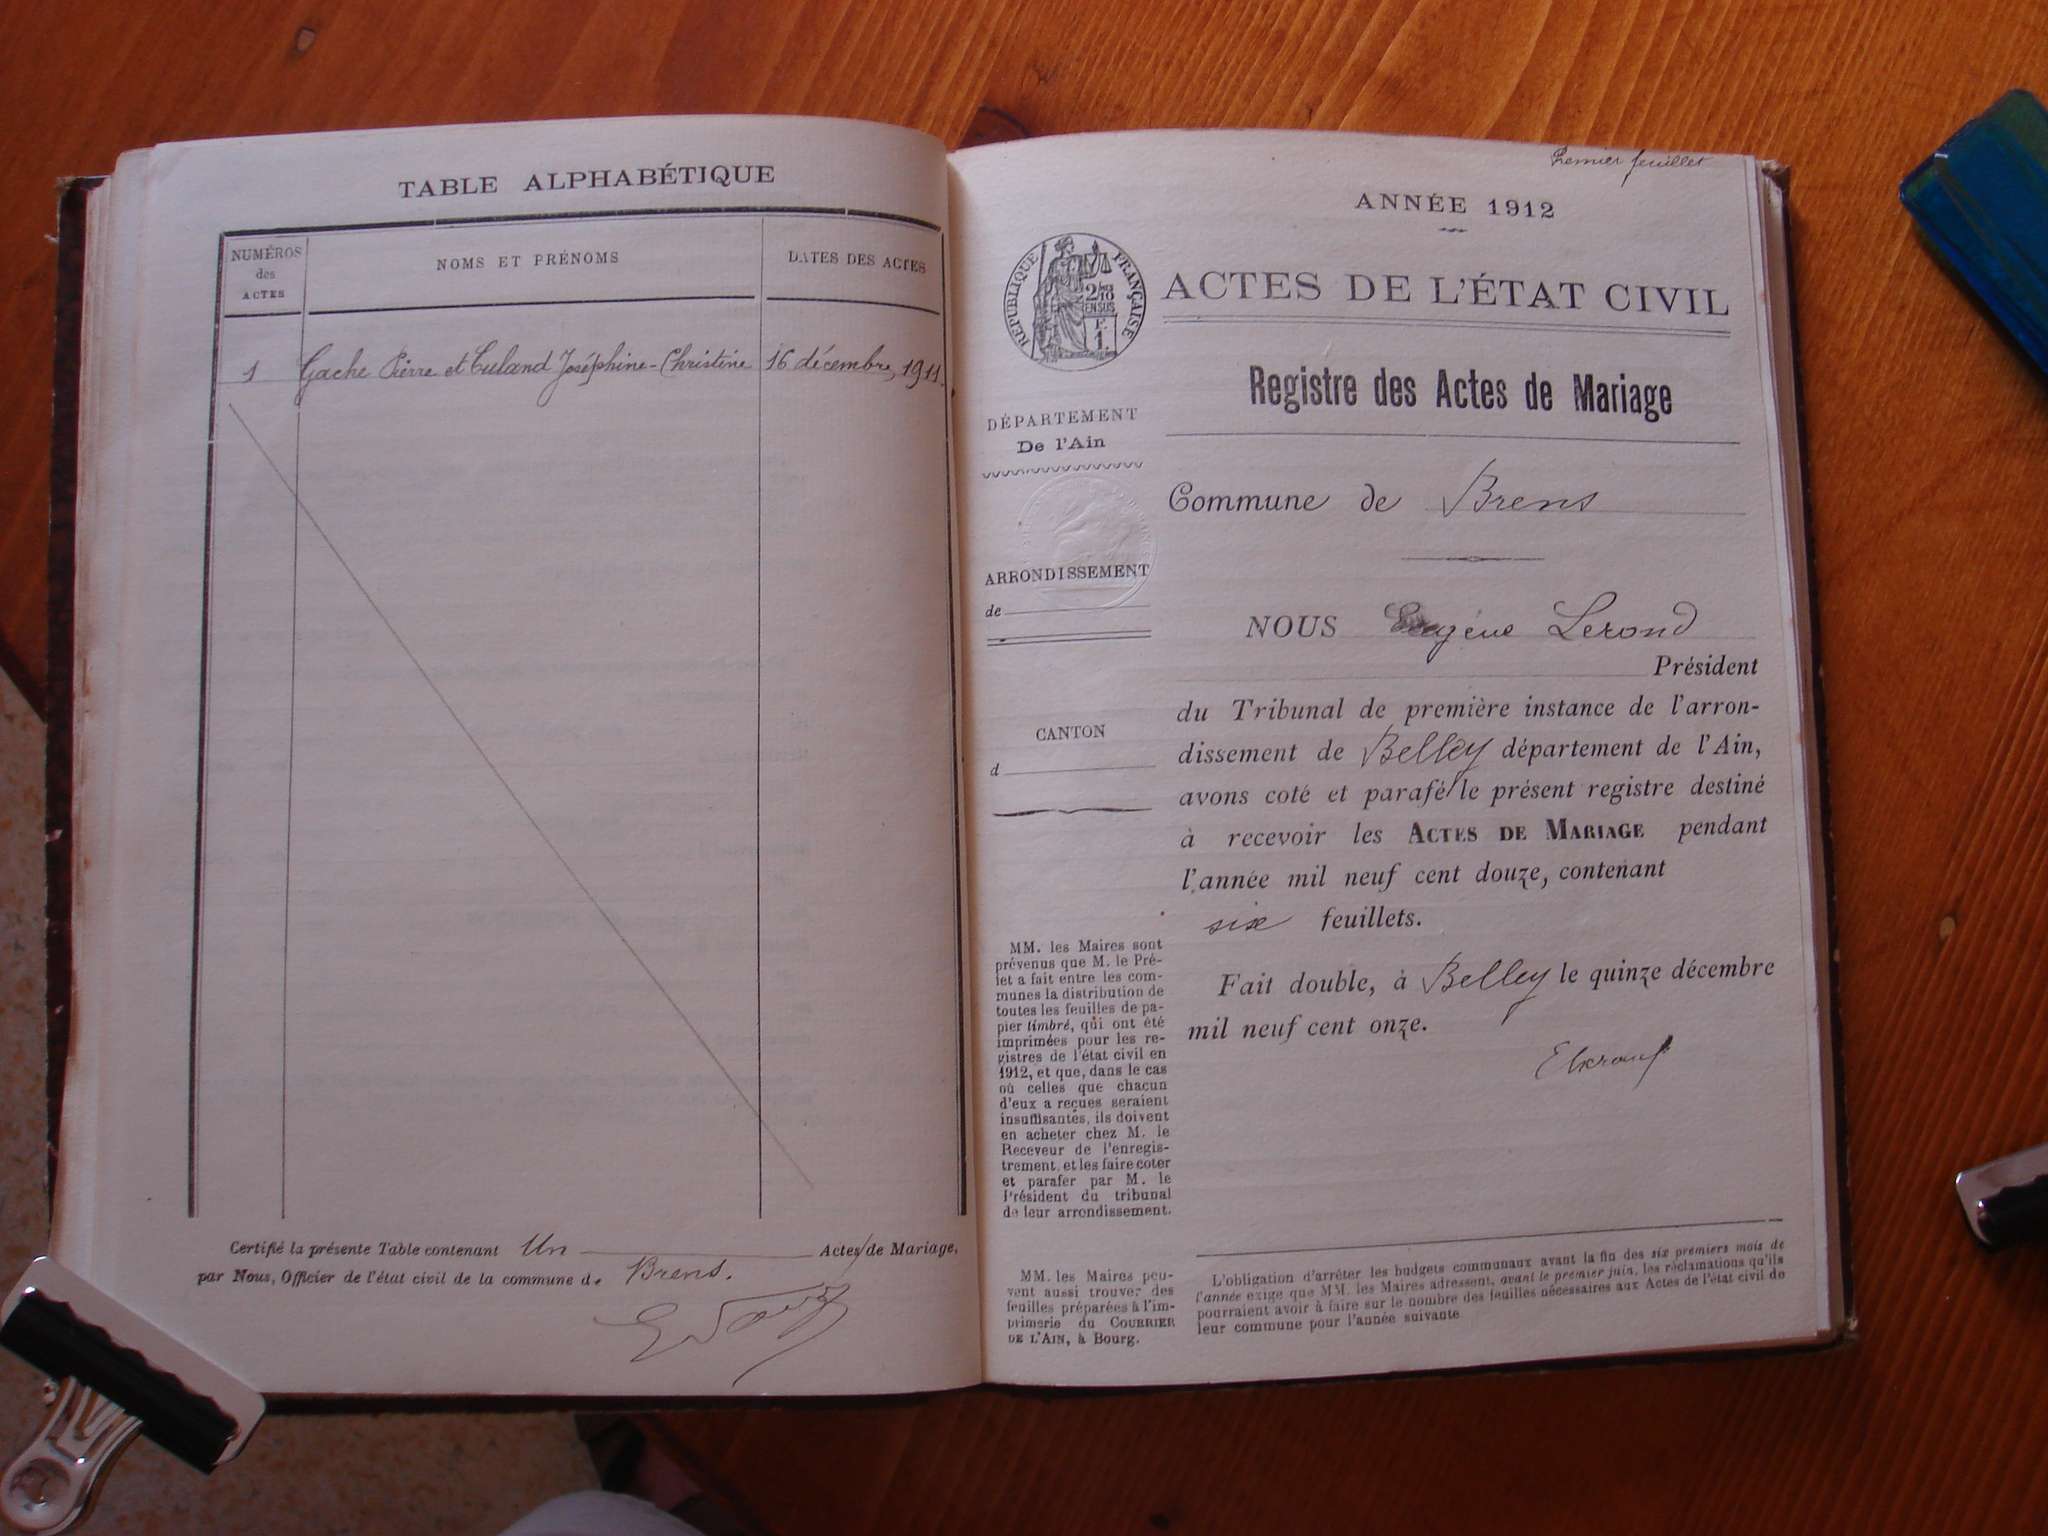 TABLE ALPHABÉTIQUE
NUMÉROS
des
ACTES
NOMS ET PRÉNOMS
DATES DES ACTES
1 Gache Pierre et Culand Joséphine-Christine 16 décembre 1911.
Certifié la présente Table contenant Un Actes de Mariage,
par Nous, Officier de l'état civil de la commune de Brens.
Premier feuillet
ANNÉE 1912
RÉPUBLIQUE FRANÇAISE
2/10
EN SUS
F.
1.
ACTES DE L'ÉTAT CIVIL
Registre des Actes de Mariage
DÉPARTEMENT
De l'Ain
Commune de Brens
ARRONDISSEMENT
de
NOUS Eugène Lerond
Président
CANTON
d
du Tribunal de première instance de l'arron-
dissement de Belley département de l'Ain,
avons coté et parafé le présent registre destiné
à recevoir les ACTES DE MARIAGE pendant
l'année mil neuf cent douze, contenant
six feuillets.
Fait double, à Belley le quinze décembre
mil neuf cent onze.
MM. les Maires sont
prévenus que M. le Pré-
fet a fait entre les com-
munes la distribution de
toutes les feuilles de pa-
pier timbré, qui ont été
imprimées pour les re-
gistres de l'état civil en
1912, et que, dans le cas
où celles que chacun
d'eux a reçues seraient
insuffisantes, ils doivent
en acheter chez M. le
Receveur de l'enregis-
trement, et les faire coter
et parafer par M. le
Président du tribunal
de leur arrondissement.
MM. les Maires peu-
vent aussi trouver des
feuilles préparées à l'im-
primerie du COURRIER
DE L'AIN, à Bourg.
L'obligation d'arrêter les budgets communaux avant la fin des six premiers mois de
l'année exige que MM. les Maires adressent, avant le premier juin, les réclamations qu'ils
pourraient avoir à faire sur le nombre des feuilles nécessaires aux Actes de l'état civil de
leur commune pour l'année suivante